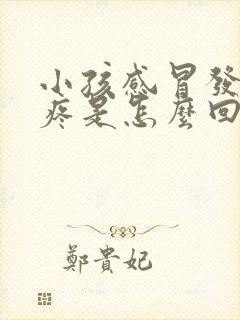 小孩感冒發
疼是怎麼回
鄭貴妃